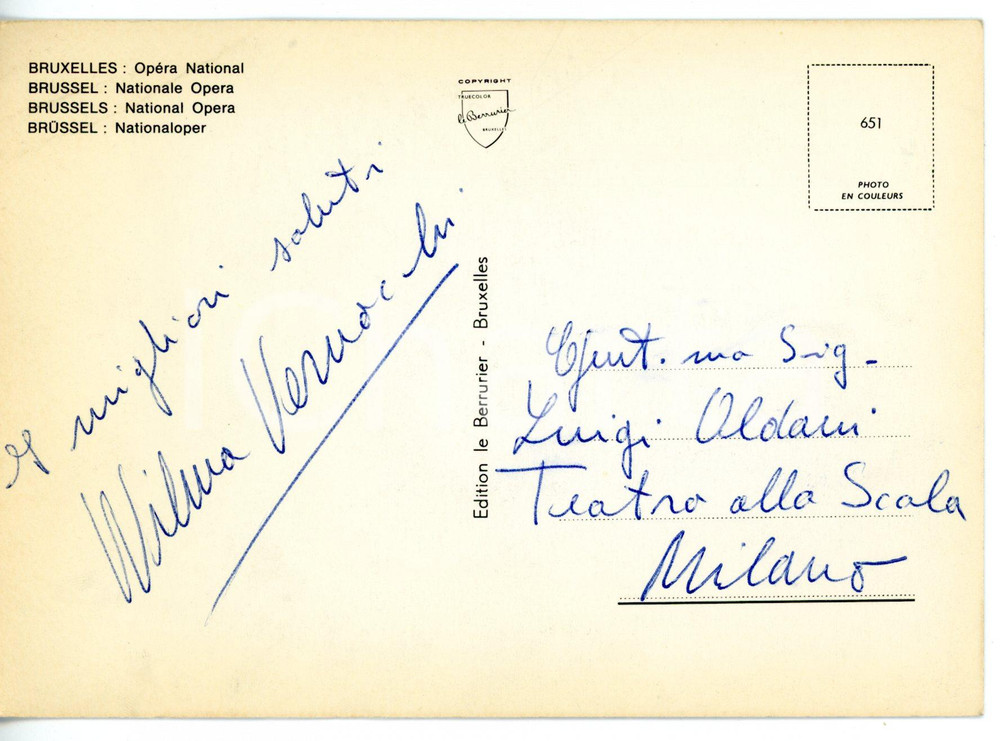 BRUXELLES : Opéra National
BRUSSEL : Nationale Opera
BRUSSELS : National Opera
BRÜSSEL : Nationaloper
COPYRIGHT
TRUECOLOR
le Berrurier
BRUXELLES
651
PHOTO
EN COULEURS
migliori saluti
Wilma Vernocchi
Edition le Berrurier - Bruxelles
Gent. mo Sig.
Luigi Oldani
Teatro alla Scala
Milano